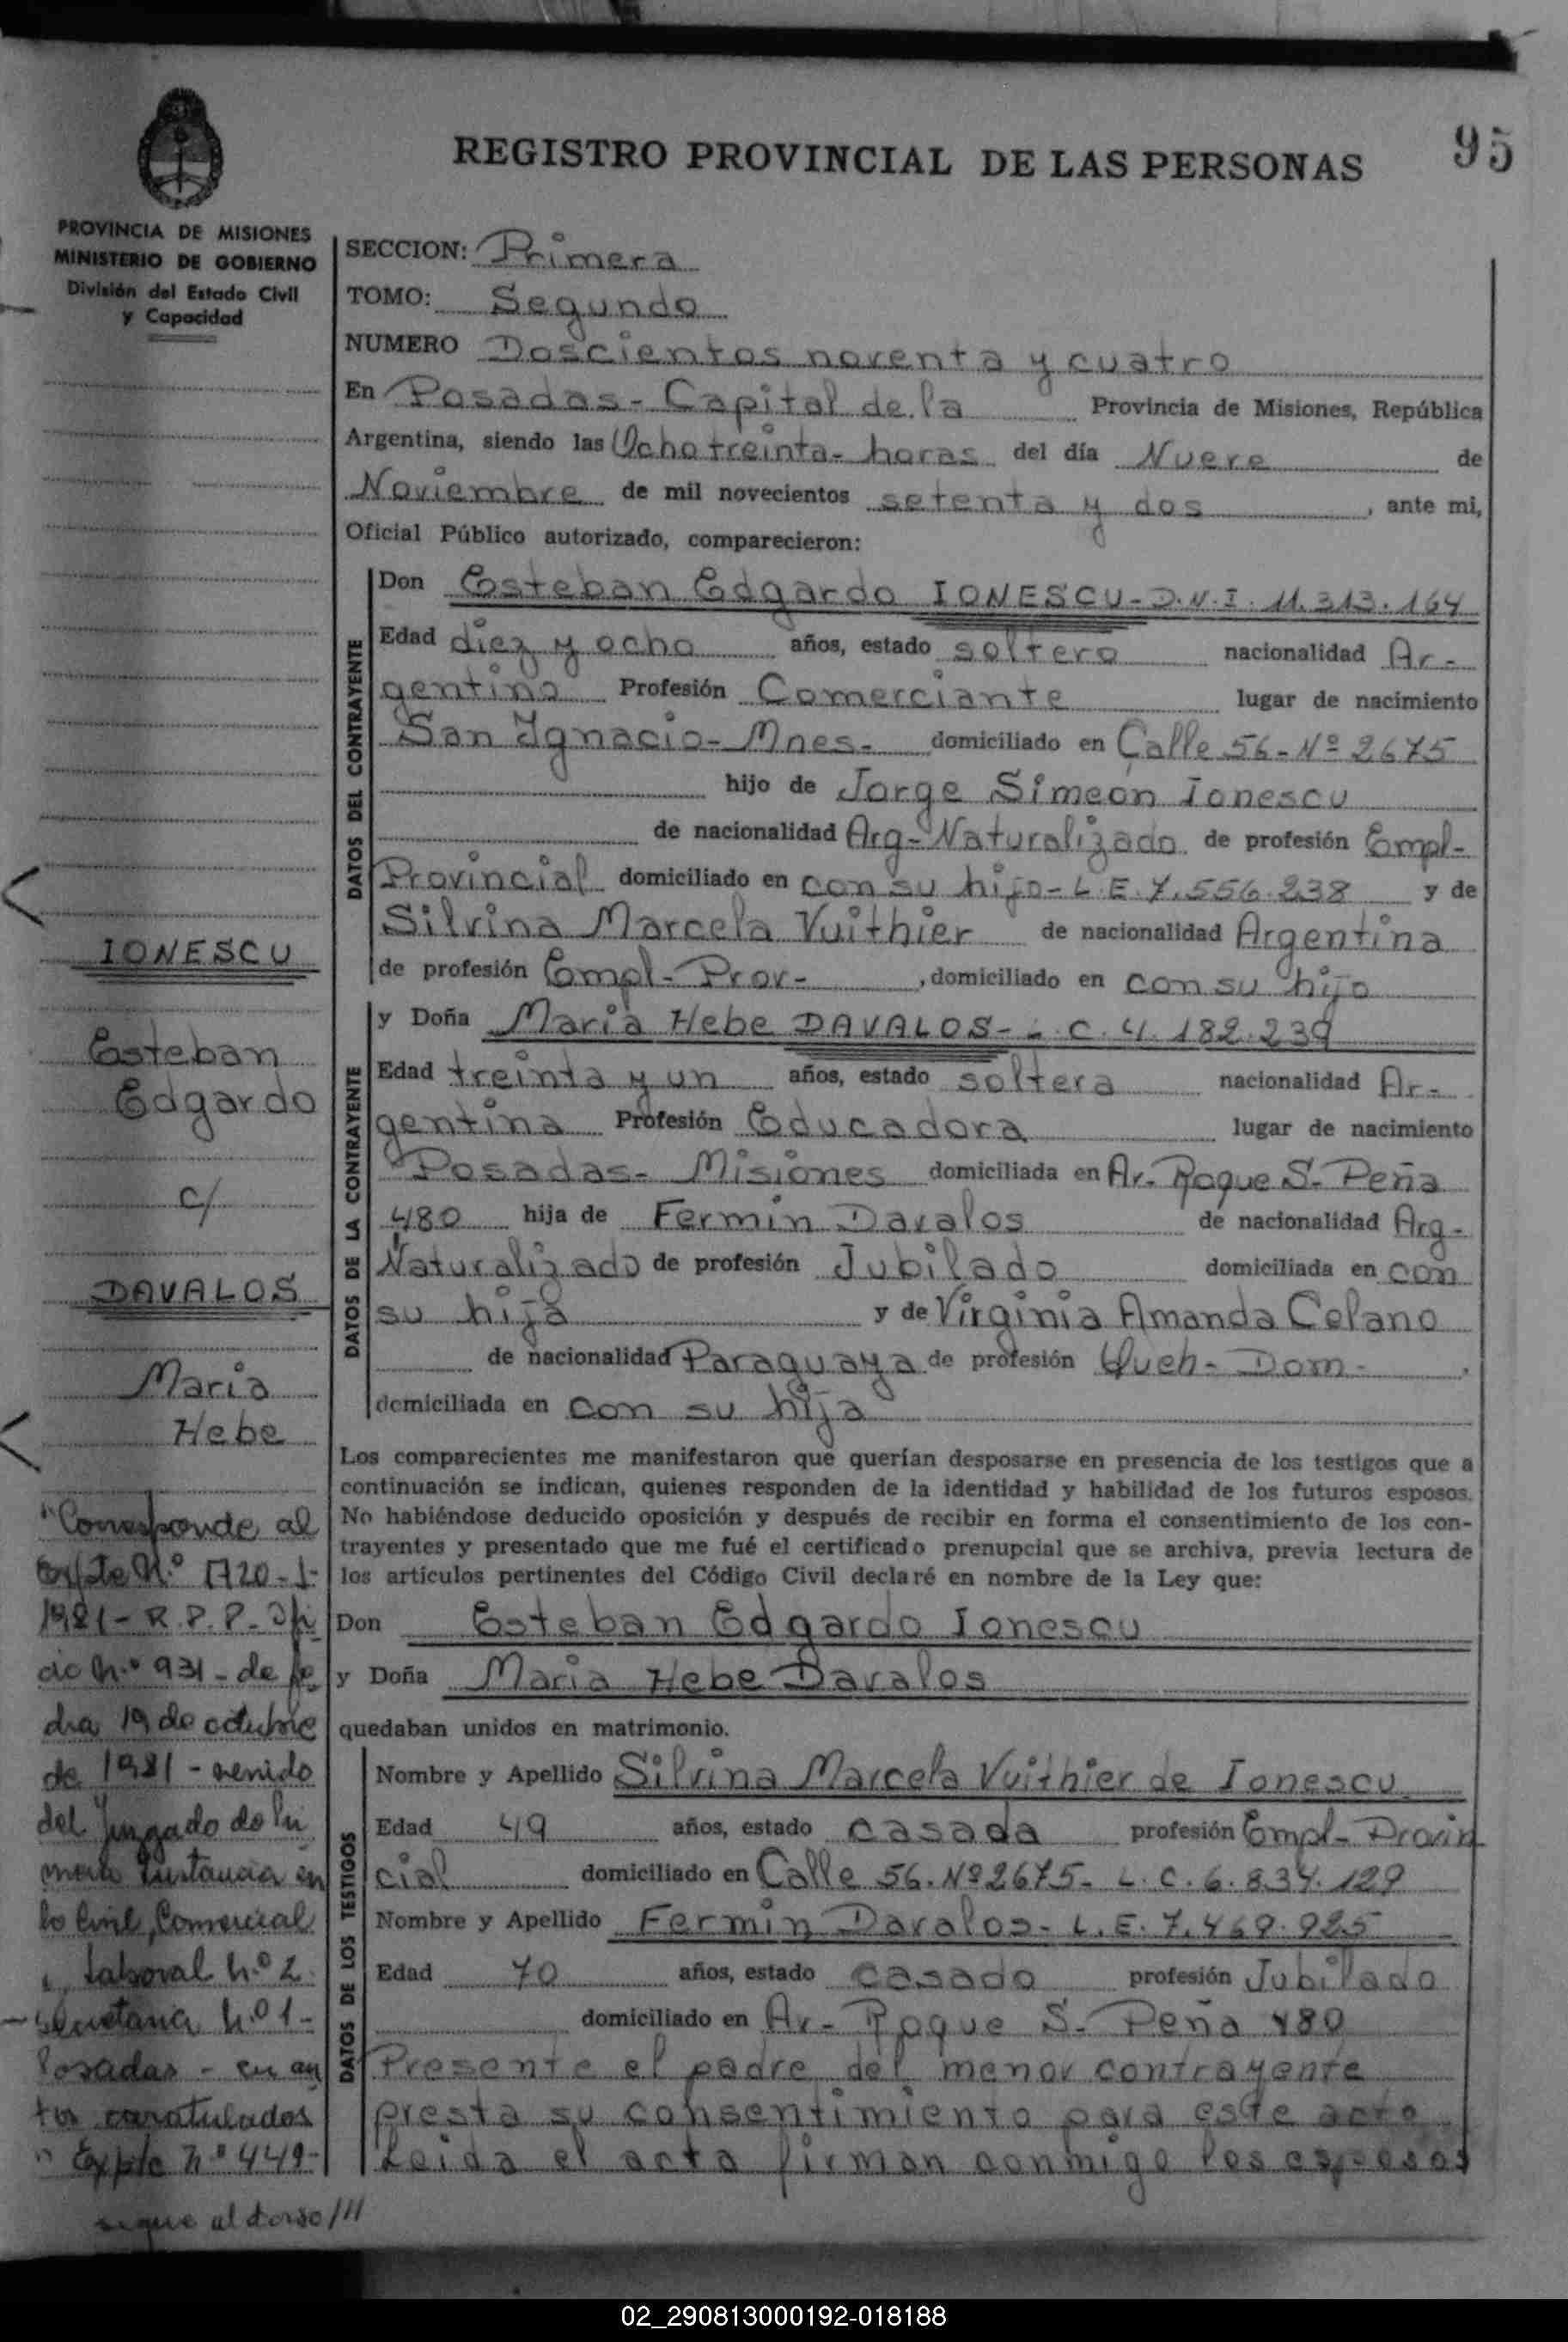 REGISTRO PROVINCIAL DE LAS PERSONAS
95
PROVINCIA DE MISIONES
MINISTERIO DE GOBIERNO
División del Estado Civil
y Capacidad
SECCION: Primera
TOMO: Segundo
NUMERO Doscientos noventa y cuatro
En Posadas - Capital de la Provincia de Misiones, República
Argentina, siendo las Ocho treinta - horas del día Nueve de
Noviembre de mil novecientos setenta y dos, ante mi,
Oficial Público autorizado, comparecieron:
DATOS DEL CONTRAYENTE
Don Esteban Edgardo IONESCU - D.N.I. 11.313.164
Edad diez y ocho años, estado soltero nacionalidad Ar-
gentino Profesión Comerciante lugar de nacimiento
San Ignacio - Mnes - domiciliado en Calle 56 - Nº 2675
hijo de Jorge Simeón Ionescu
de nacionalidad Arg - Naturalizado de profesión Empl -
Provincial domiciliado en con su hijo - L.E. 7.556.238 y de
Silvina Marcela Vuithier de nacionalidad Argentina
de profesión Empl - Prov - , domiciliado en con su hijo
DATOS DE LA CONTRAYENTE
y Doña Maria Hebe DAVALOS - L.C. 4.182.239
Edad treinta y un años, estado soltera nacionalidad Ar-
gentina Profesión Educadora lugar de nacimiento
Posadas - Misiones domiciliada en Av. Roque S. Peña
480 hija de Fermin Davalos de nacionalidad Arg -
Naturalizado de profesión Jubilado domiciliada en con
su hija y de Virginia Amanda Celano
de nacionalidad Paraguaya de profesión Queh - Dom - .
domiciliada en con su hija
Los comparecientes me manifestaron que querían desposarse en presencia de los testigos que a
continuación se indican, quienes responden de la identidad y habilidad de los futuros esposos.
No habiéndose deducido oposición y después de recibir en forma el consentimiento de los con-
trayentes y presentado que me fué el certificado prenupcial que se archiva, previa lectura de
los artículos pertinentes del Código Civil declaré en nombre de la Ley que:
Don Esteban Edgardo Ionescu
y Doña Maria Hebe Davalos
quedaban unidos en matrimonio.
DATOS DE LOS TESTIGOS
Nombre y Apellido Silvina Marcela Vuithier de Ionescu
Edad 49 años, estado casada profesión Empl - Provin
cial domiciliado en Calle 56. Nº 2675 - L.C. 6.834.129
Nombre y Apellido Fermin Davalos - L.E. 7.469.925
Edad 70 años, estado casado profesión Jubilado
domiciliado en Av - Roque S. Peña 480
Presente el padre del menor contrayente
presta su consentimiento para este acto
Leida el acta firman conmigo los esposos
IONESCU
Esteban
Edgardo
c/
DAVALOS
Maria
Hebe
"Corresponde al
Expte N.º 1720 - I -
1981 - R.P.P. - Ofi
cio N.º 931 - de fe
cha 19 de octubre
de 1981 - venido
del Juzgado de Pri
mera Instancia en
lo Civil, Comercial
y Laboral N.º 2
- Secretaria N.º 1 -
Posadas - en au
tos caratulados
" Expte N.º 449 -
sigue al dorso ///
02_290813000192-018188